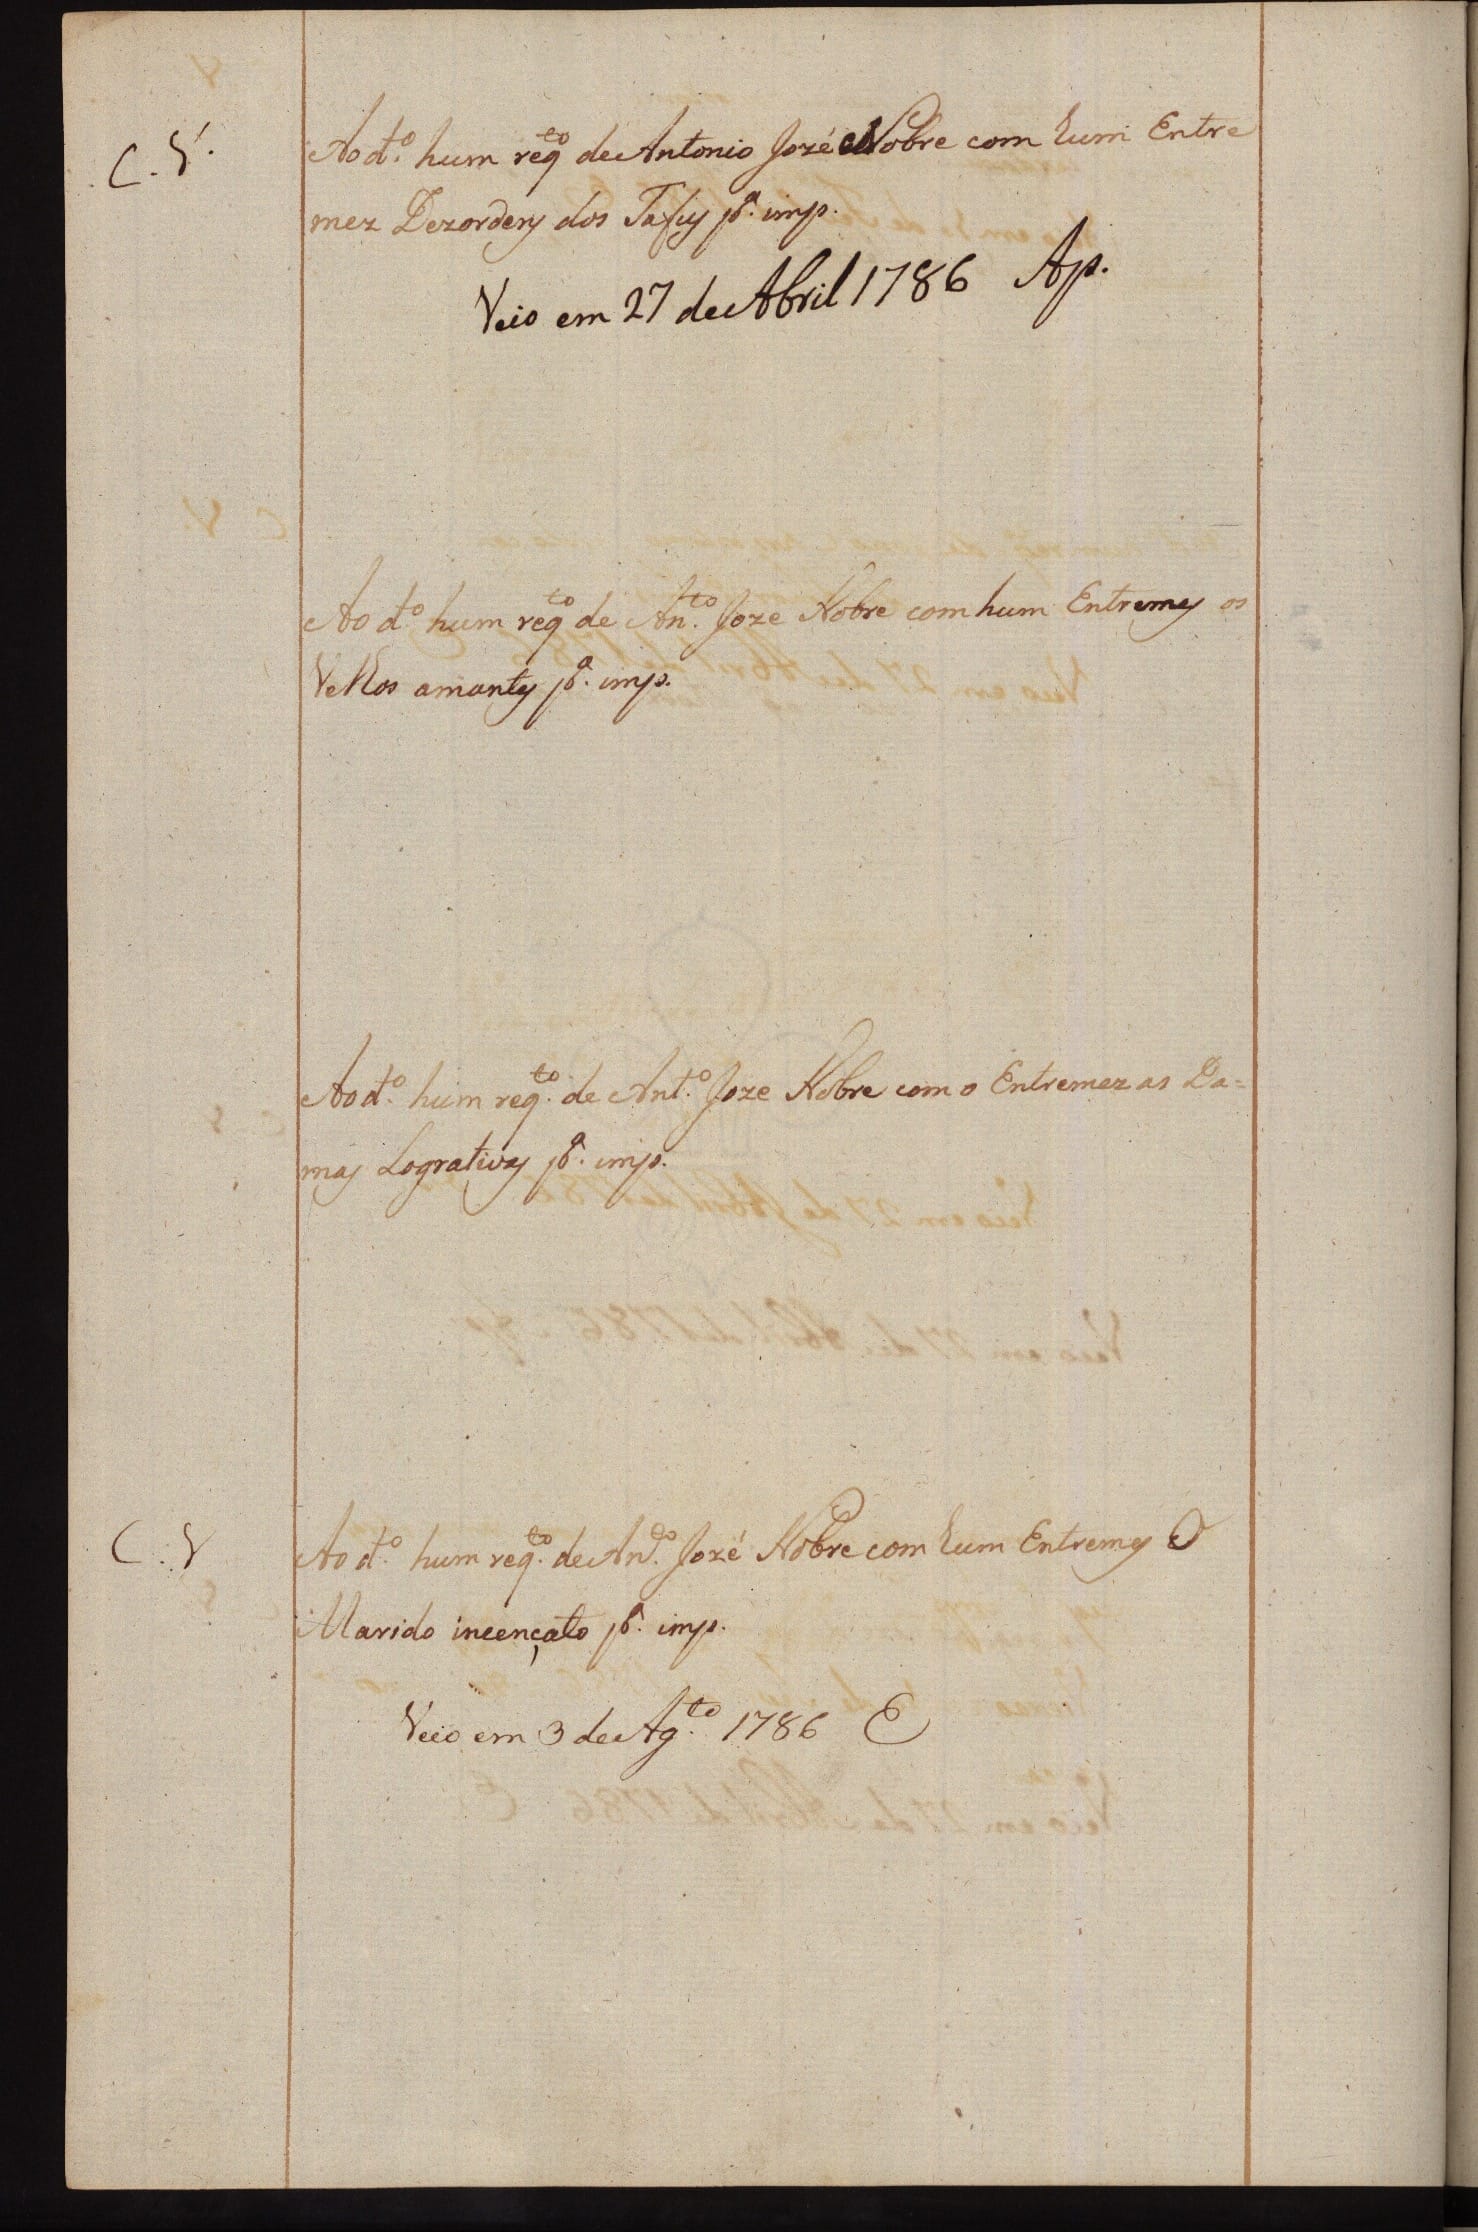 C. V.
Ao d.º hum reqto de Antonio Jozé Nobre com hum Entre
mez Dezordens dos Tafues p.ª imp.
Veio em 27 de Abril 1786 Ap.
Ao d.º hum reqto de An.to Joze Nobre com hum Entremes os
Velhos amantes p.ª imp.
Ao d.º hum reqto. de Ant.º Joze Nobre com o Entremez as Da=
mas Logrativas p.ª imp.
C. V
Ao d.º hum reqto. de An.do José Nobre com hum Entremes O
Marido incençato p.ª imp.
Veio em 3 de Ag.to 1786 E